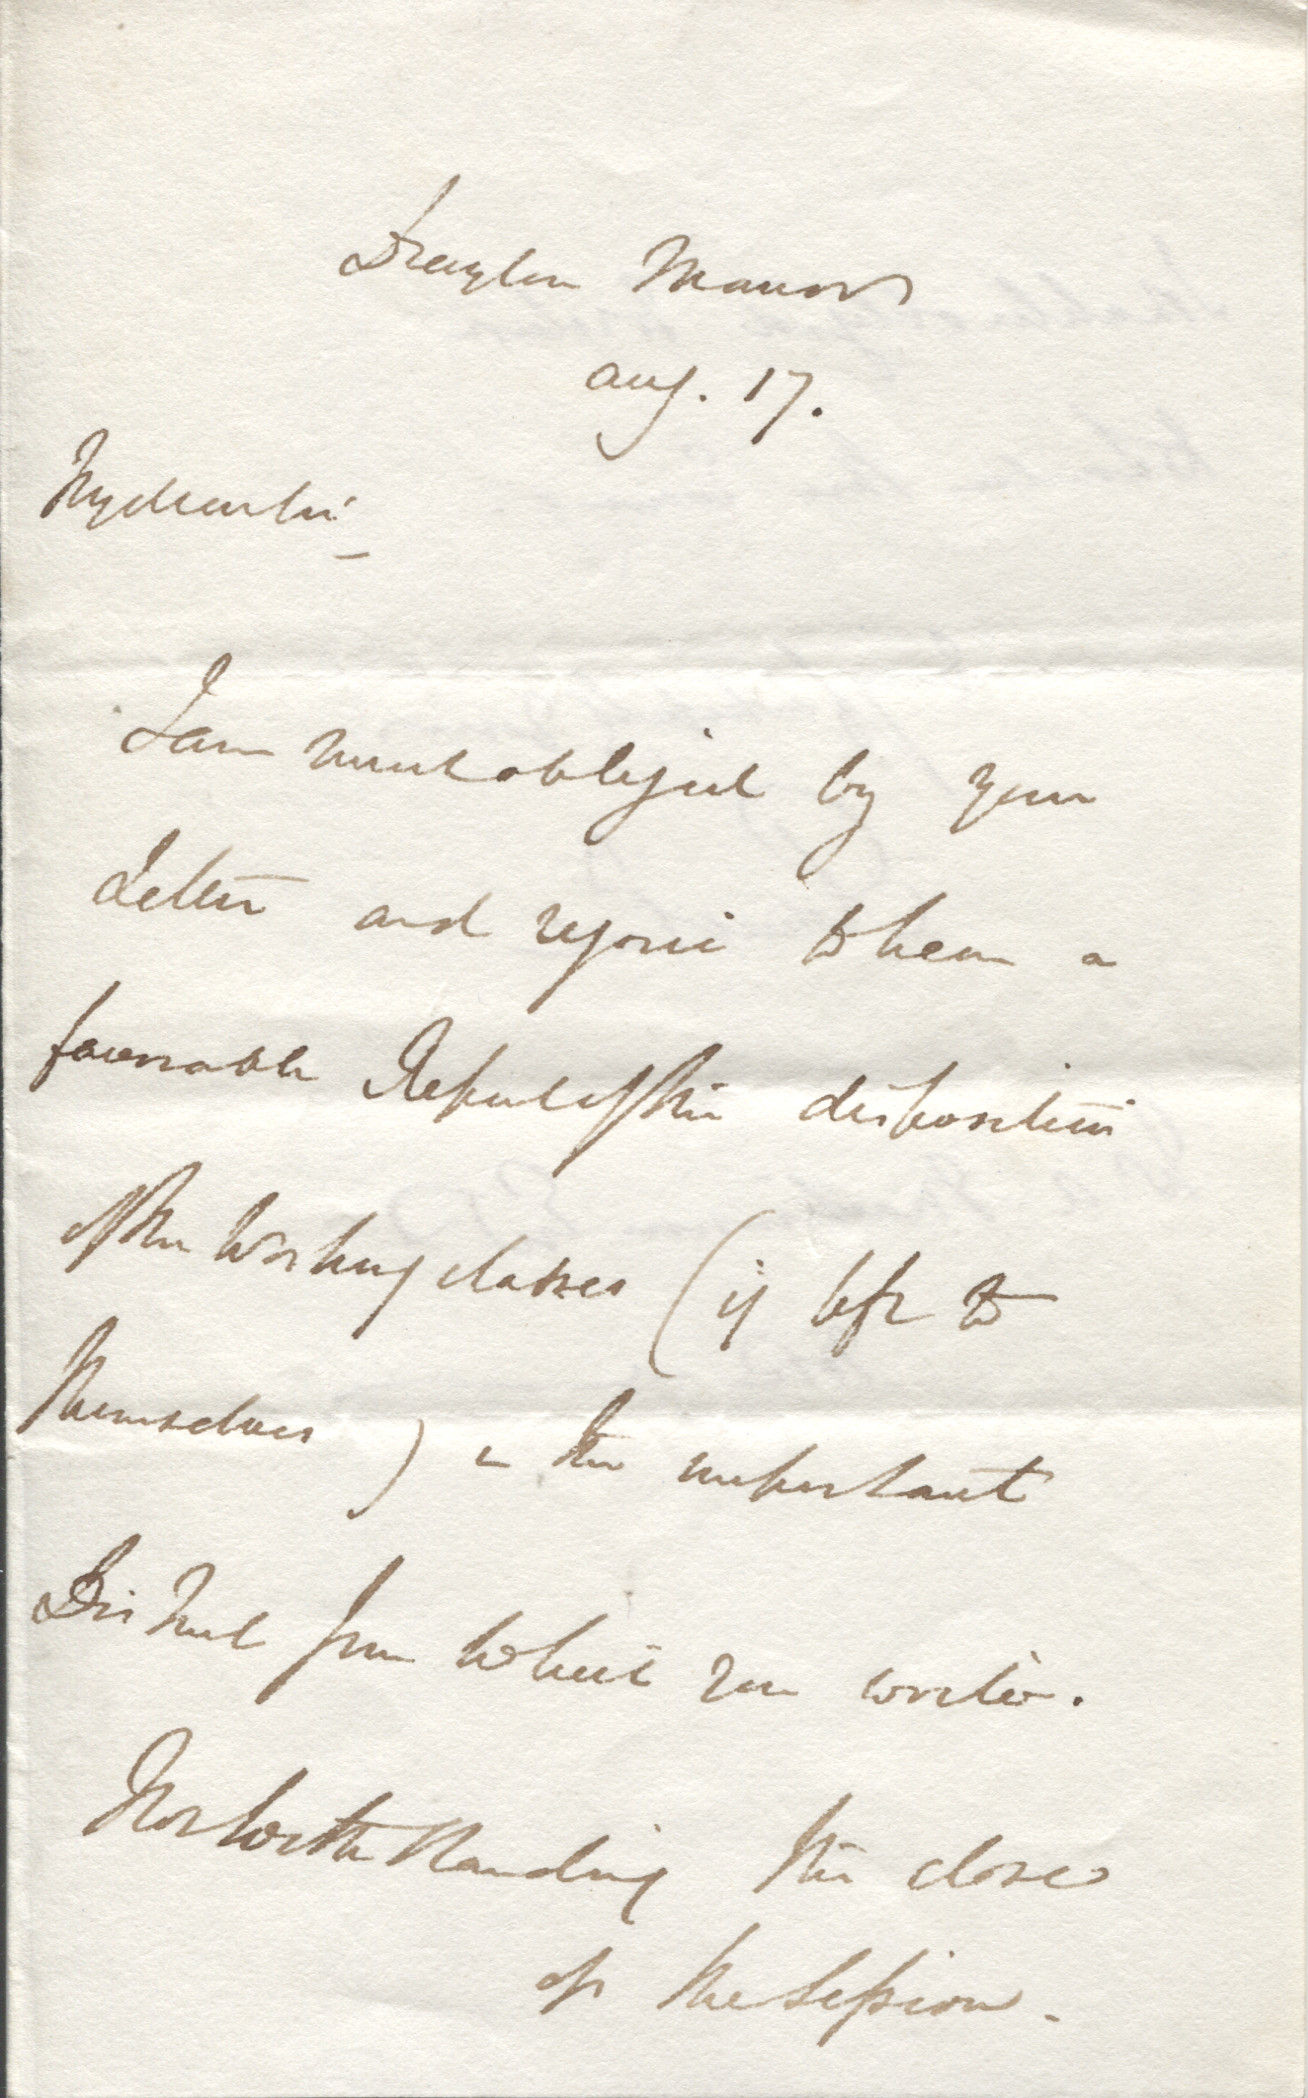 Drayton Manor
Aug. 17.
My dear Sir
I am much obliged by your
Letter and rejoice to hear a
favourable Report of the disposition
of the Working classes (if left to
themselves) in the important
District from which you write.
Notwithstanding the close
of the Session.